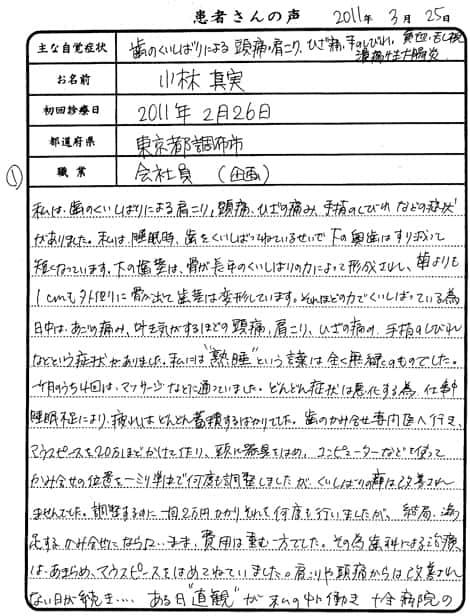 患者さんの声 2011年 3月 25日
主な自覚症状 歯のくいしばりによる 頭痛・肩こり、ひざ痛、手のしびれ、
潰瘍性大腸炎
お名前 小林 真実
初回診療日 2011年 2月26日
都道府県 東京都調布市
職業 会社員 (企画)
①
私は、歯のくいしばりによる肩こり、頭痛、ひざの痛み、手指のしびれなどの症状
がありました。私は、睡眠時、歯をくいしばってねているせいで下の奥歯はすり減って
短くなっています。下の歯茎は、骨が長年のくいしばりの力によって形成され、歯よりも
1cmも外側に骨が出て歯茎は変形しています。それほどの力でくいしばっている為
日中は、あごの痛み、吐き気がするほどの頭痛、肩こり、ひざの痛み、手指のしびれ
などという症状がありました。私には"熟睡"という言葉は全く無縁のものでした。
一ヶ月のうち4回は、マッサージなどに通っていました。どんどん症状は悪化する為、仕事中
睡眠不足により、疲れはどんどん蓄積するばかりでした。歯のかみ合せ専門医へ行き、
マウスピースを20万ほどかけて作り、頭に器具をはめ、コンピューターなどを使って
かみ合せの位置を一ミリ単位で何度も調整しましたが、くいしばりの癖は改善され
ませんでした。調整するのに一回2万円かかりそれを何度も行いましたが、結局、満
足するかみ合せにならないまま、費用は重む一方でした。その為歯科による治療
は、あきらめ、マウスピースをはめてねていました。肩こりや頭痛からは改善され
ない日が続き… ある日"直観"が 私の中で働き 十全病院の